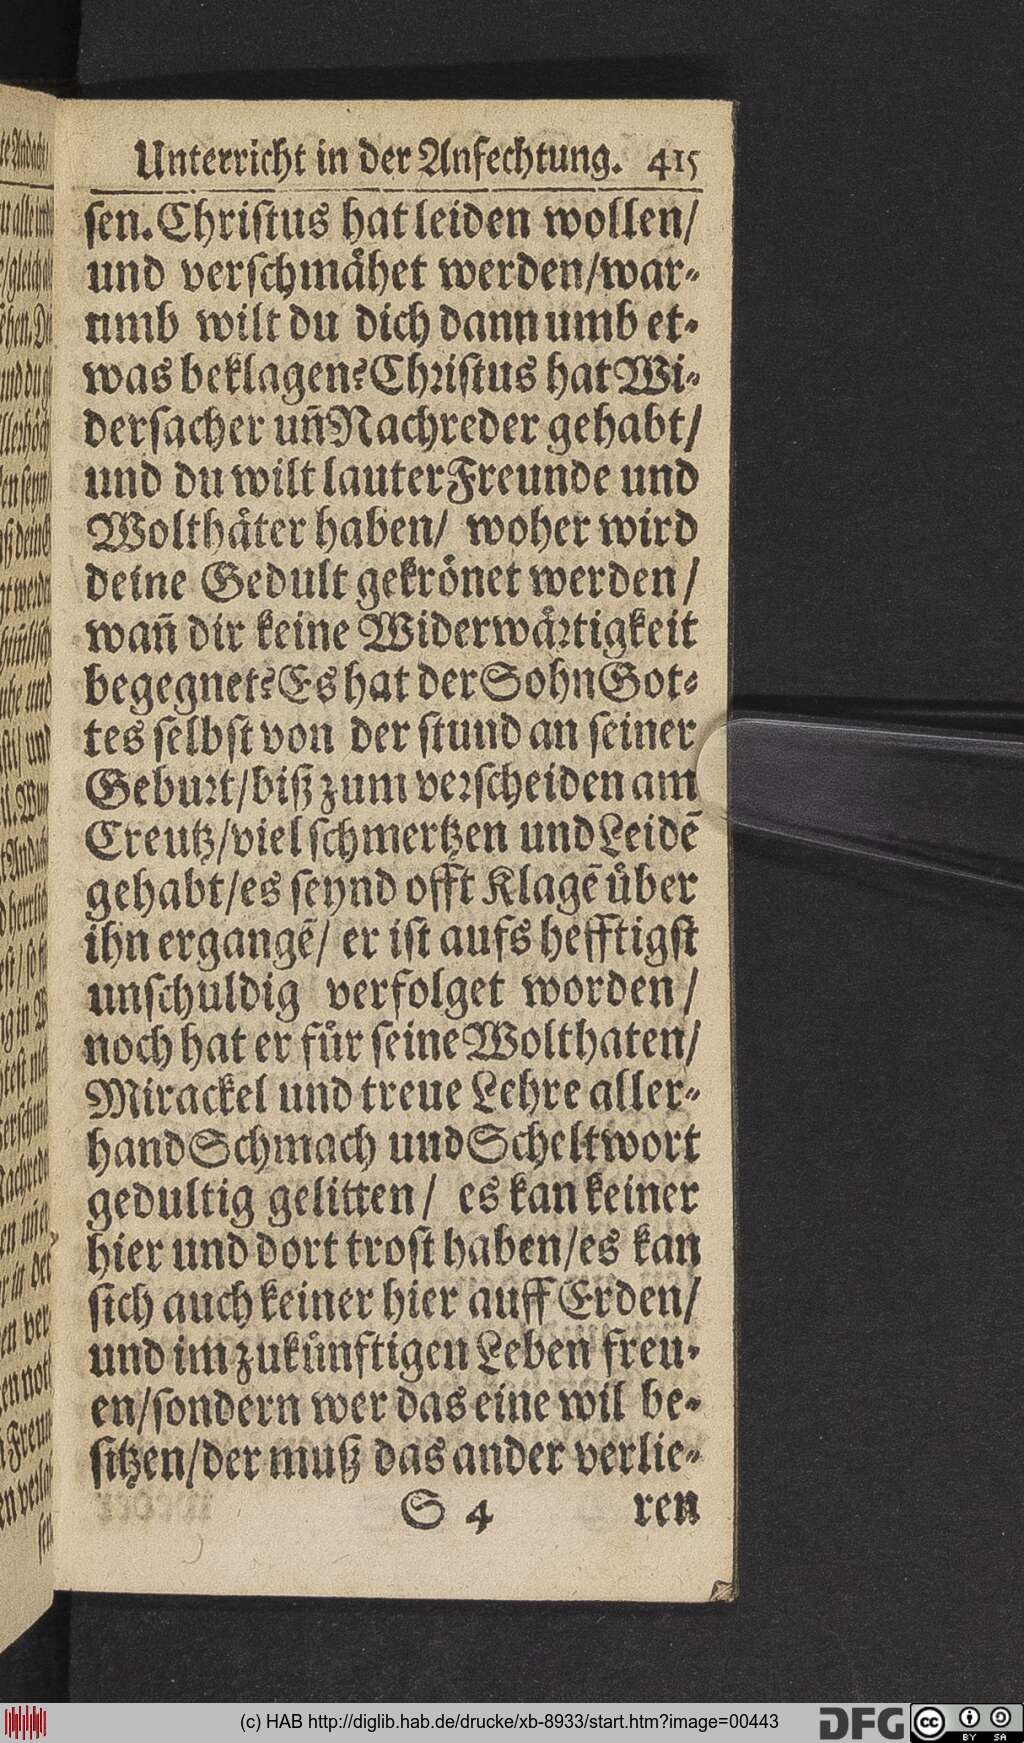 Unterricht in der Anfechtung. 415
sen. Christus hat leiden wollen/
und verschmåhet werden/war-
umb wilt du dich dann umb et-
was beklagen? Christus hat Wi-
dersacher uñ Nachreder gehabt/
und du wilt lauter Freunde und
Wolthåter haben/ woher wird
deine Gedult gekrönet werden/
wañ dir keine Widerwårtigkeit
begegnet? Es hat der Sohn Got-
tes selbst von der stund an seiner
Geburt/biß zum verscheiden am
Creutz/viel schmertzen und Leidẽ
gehabt/es seynd offt Klagẽ über
ihn ergangẽ/ er ist aufs hefftigst
unschuldig verfolget worden/
noch hat er für seine Wolthaten/
Mirackel und treue Lehre aller-
hand Schmach und Scheltwort
gedultig gelitten/ es kan keiner
hier und dort trost haben/es kan
sich auch keiner hier auff Erden/
und im zukünftigen Leben freu-
en/sondern wer das eine wil be-
sitzen/der muß das ander verlie-
S 4 ren
(c) HAB http://diglib.hab.de/drucke/xb-8933/start.htm?image=00443
DFG
cc BY SA